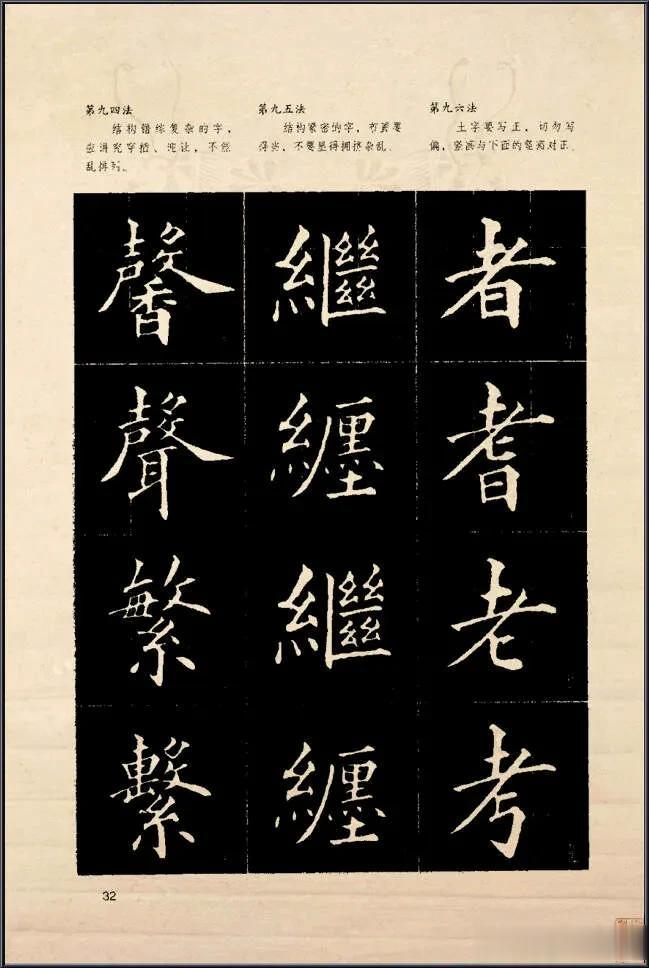 第九四法
结构错综复杂的字，
应讲究穿插、迎让，不能
乱排列。
第九五法
结构紧密的字，布置要
得当，不要显得拥挤杂乱。
第九六法
土字要写正，切勿写
偏，竖画与下面的竖笔对正
馨 繼 者
聲 纏 耆
繁 繼 老
繫 纏 考
32